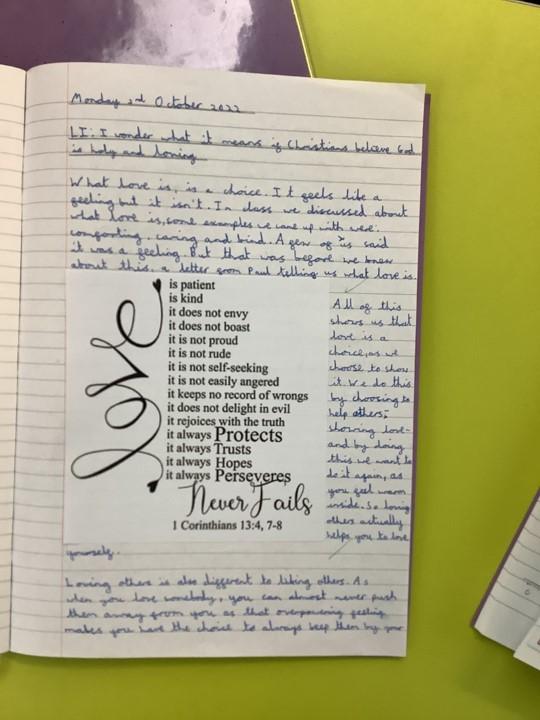 Monday 3rd October 2022
LI: I wonder what it means if Christians believe God
is holy and loving
What love is, is a choice. It feels like a
feeling but it isn't. In class we discussed about
what love is, some examples we came up with were:
comforting, caring and kind. A few of us said
it was a feeling. But that was before we knew
about this, a letter from Paul telling us what love is.
love
is patient
is kind
it does not envy
it does not boast
it is not proud
it is not rude
it is not self-seeking
it is not easily angered
it keeps no record of wrongs
it does not delight in evil
it rejoices with the truth
it always Protects
it always Trusts
it always Hopes
it always Perseveres
Never Fails
1 Corinthians 13:4, 7-8
All of this
shows us that
love is a
choice, as we
choose to show
it. We do this
by choosing to
help others;
showing love-
and by doing
this we want to
do it again, as
you feel warm
inside. So loving
others actually
helps you to love
yourself.
Loving others is also different to liking others. As
when you love somebody, you can almost never push
them away from you as that overpowering feeling
makes you have the choice to always keep them by your